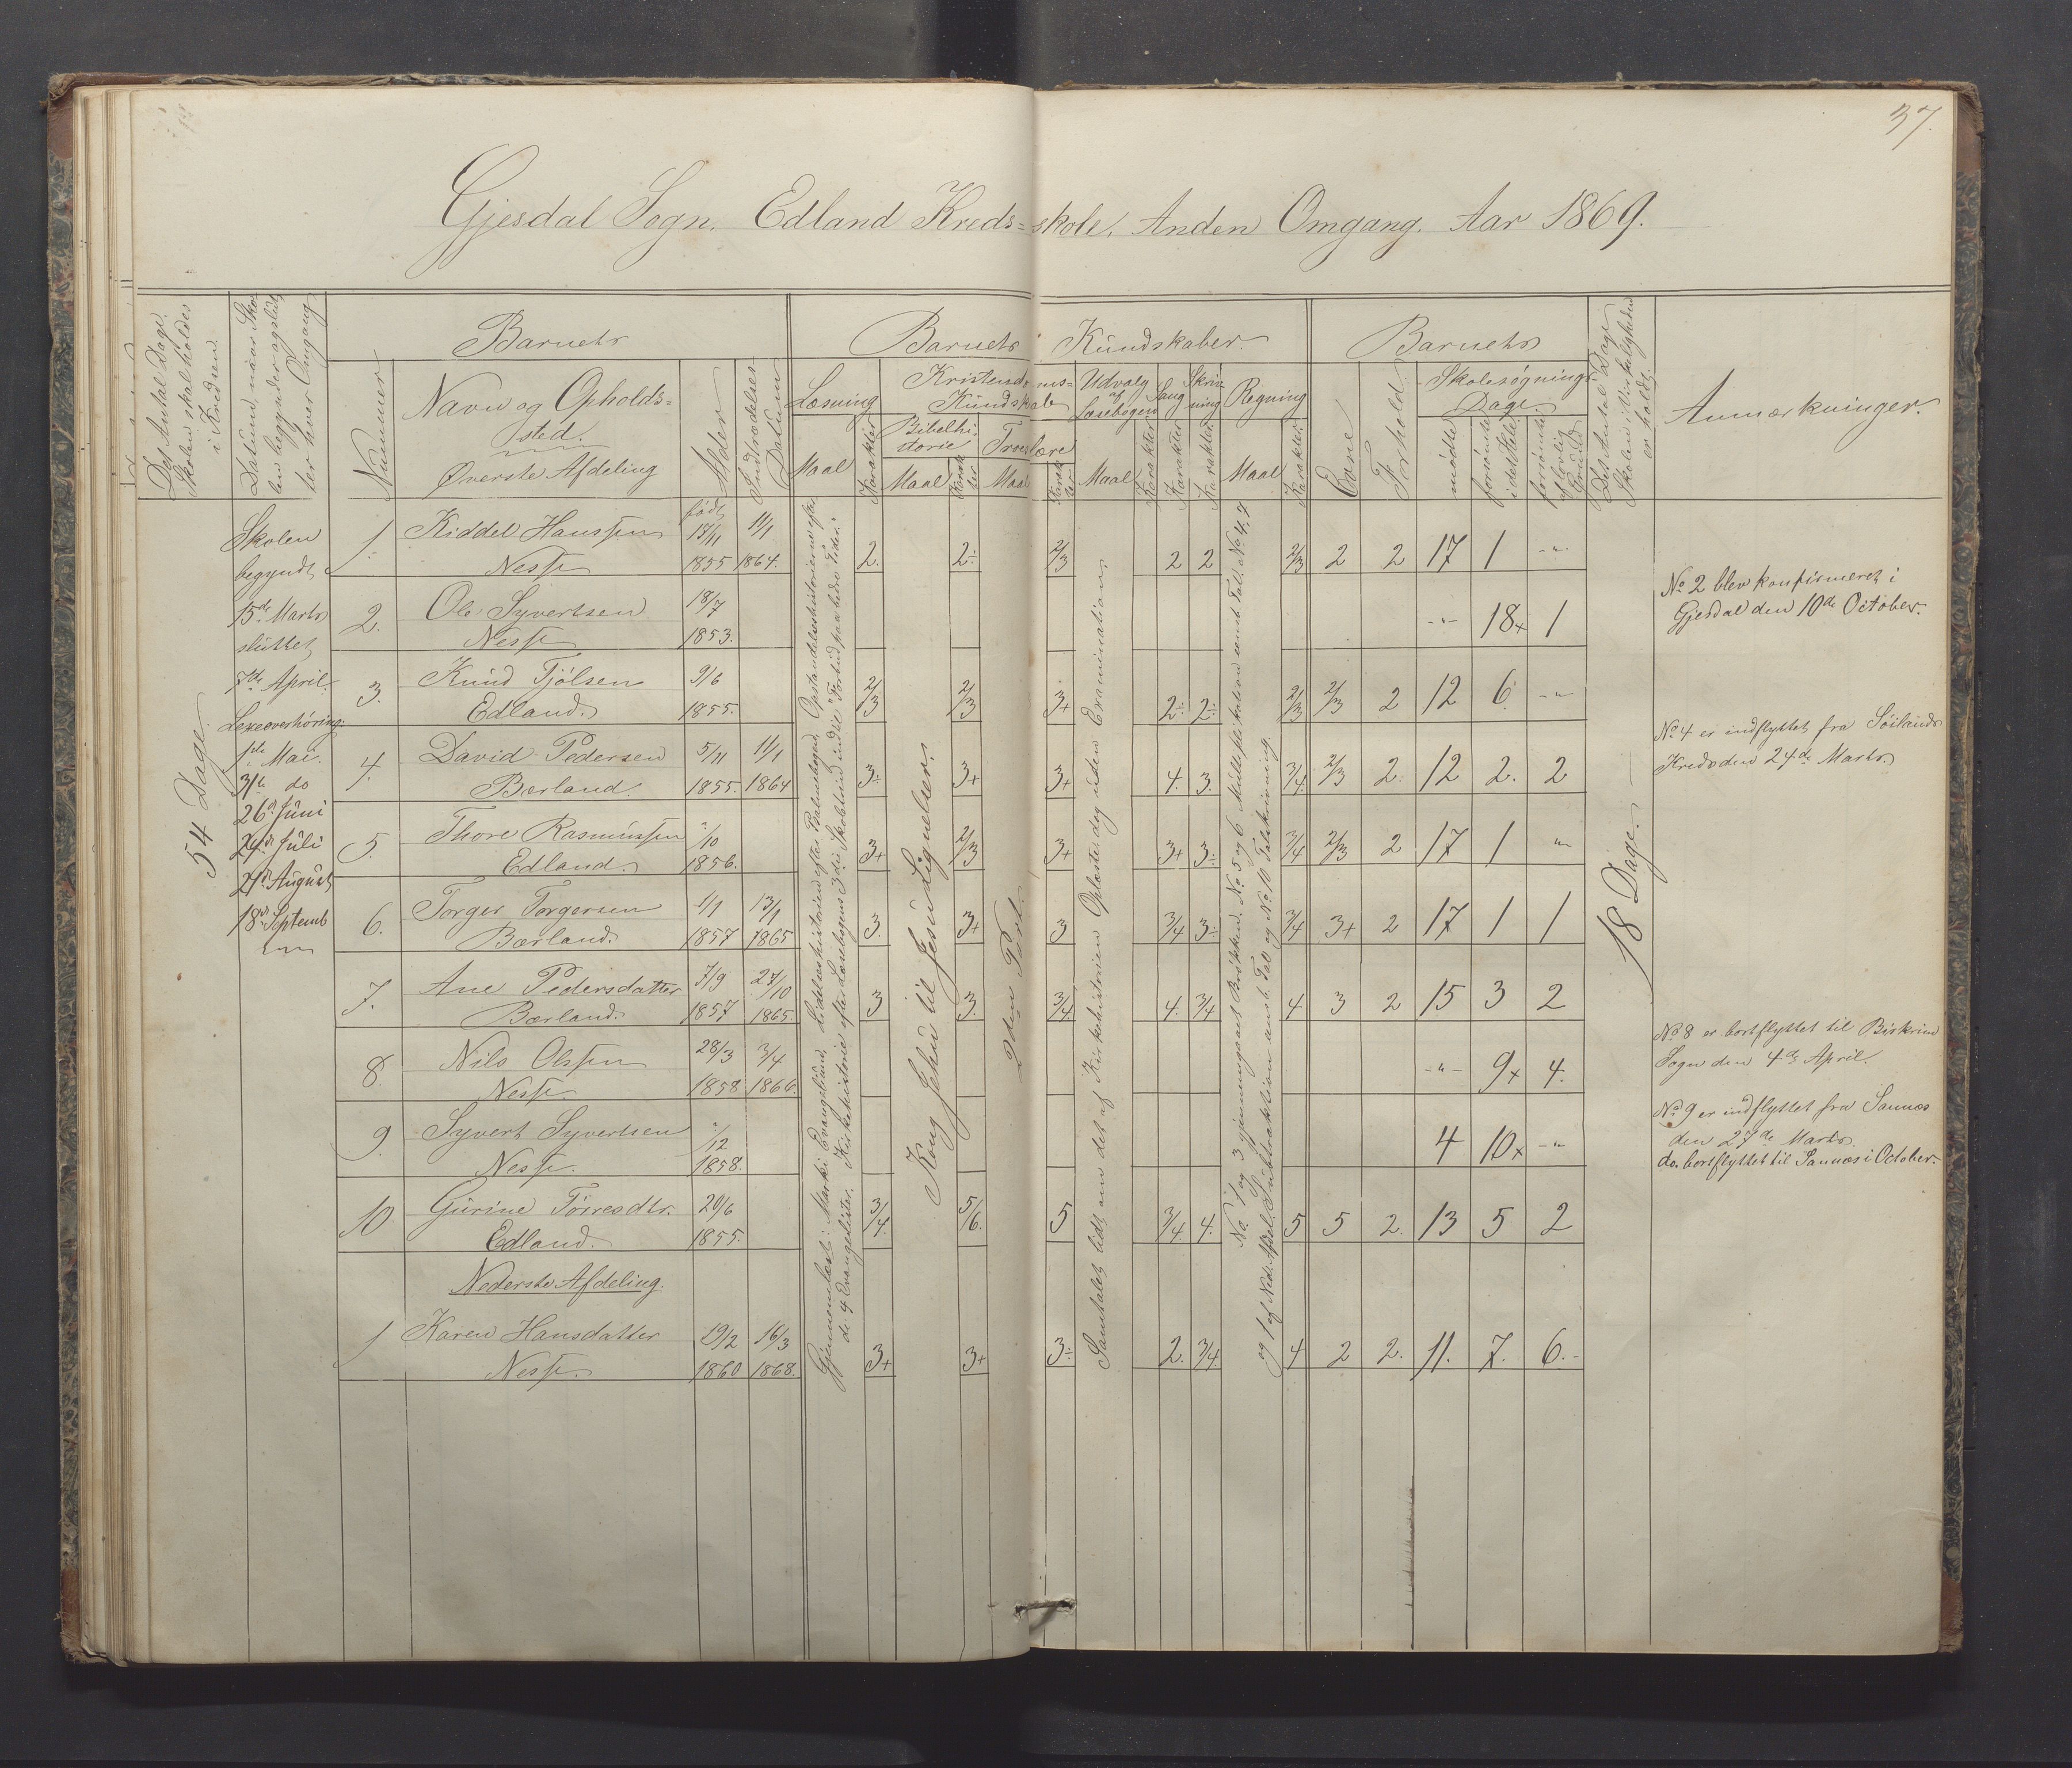 37.
Gjesdal Sogn. Edland Kreds=skole. Anden Omgang. Aar 1869.
Det Antal Dage Skolen skal holdes i Kredsen.
Datum, naar Skolen begynder og slutter hver Omgang
Barnets
Nummer
Navn og Opholds=
sted.
Øverste Afdeling
Alder
Indtrædelses Datum
Barnets Kundskaber.
Læsning
Maal
Karakter
Kristendoms=
Kundskab
Bibelhi-
storie
Maal
Karakter
Troeslære
Maal
Karakter
Udvalg af
Læsebogen
Maal
Karakter
Sang
Karakter
Skriv-
ning
Karakter
Regning
Maal
Karakter
Barnets
Evne
Forhold
Skolesøgnings-
Dage.
mødte
forsømte i det Hele
forsømte af lovlig Grund
Det Antal Dage Skolen i Virkeligheden er holdt.
Anmærkninger.
54 Dage.
Skolen
begyndt
15de Marts
sluttet
7de April.
Lexeoverhöring
1ste Mai.
31te do
26de Juni
24de Juli
21de August
18de Septemb
Gjennemlæst: Marki Evangelium, Lidelseshistorien efter Psalmebogen, Opstandelseshistorierne efter
de 4 Evangelister. Kirkehistorie efter Læsebogens 3die Skoletrin indtil "Forbud paa bedre Tider."
Kong Jehu til Jesu Lignelser.
2den Part.
Samtalet lidt om det af Kirkehistorien Oplæste, dog uden Examination.
No. 1 og 3 gjennemgaaet Brökken. No 5 og 6 Multiplikation ensb. Tal. No 4, 7
og 1 af Ned. Afdel. Subtraktion ensb. Tal og No 10 Talskrivning.
18 Dage.
1. Kiddel Hanssen født 13/11 11/1
Nesse 1855 1864. 2. 2÷ 2/3 2 2 2/3 2 2 17 1 -"-
2. Ole Syvertsen 18/7
Nesse 1853. -"- 18x 1
3. Knud Tjölsen 9/6
Edland. 1855. 2/3 2/3 3+ 2÷ 2÷ 2/3 2/3 2 12 6 -"-
4. David Pedersen 5/11 11/1
Bærland. 1855. 1864 3÷ 3+ 3+ 4. 3. 3/4 2/3 2. 12 2. 2
5. Thore Rasmussen "/10
Edland. 1856. 3+ 2/3 3+ 3+ 3÷ 3/4 2/3 2 17 1 "
6. Torger Torgersen 1/1 13/1
Bærland. 1857 1865 3. 3+ 3 3/4 3÷ 3/4 3+ 2 17 1 1
7. Ane Pedersdatter 7/9 27/10
Bærland. 1857 1865. 3 3. 3/4 4. 3/4 4 3 2 15 3 2
8. Nils Olssen 28/3 3/4
Nesse 1858 1866. -"- 9x 4.
9. Syvert Syvertsen "/12
Nesse. 1858. 4 10x -"-
10 Gurine Törresdtr. 20/6
Edland. 1855. 3/4. 5/6. 5 3/4 4. 5 5 2. 13 5 2
Nederste Afdeling.
1 Karen Hansdatter 19/2 16/3
Nesse. 1860 1868. 3+ 3+ 3÷ 2. 3/4 4 2 2. 11. 7. 6.-
No 2 blev konfirmeret i
Gjesdal den 10de October.
No 4 er indflyttet fra Söilands
Kreds den 24de Marts.
No 8 er bortflyttet til Birkrim
Sogn den 4de April.
No 9 er indflyttet fra Sannæs
den 27de Marts.
do. bortflyttet til Sannæs i October.